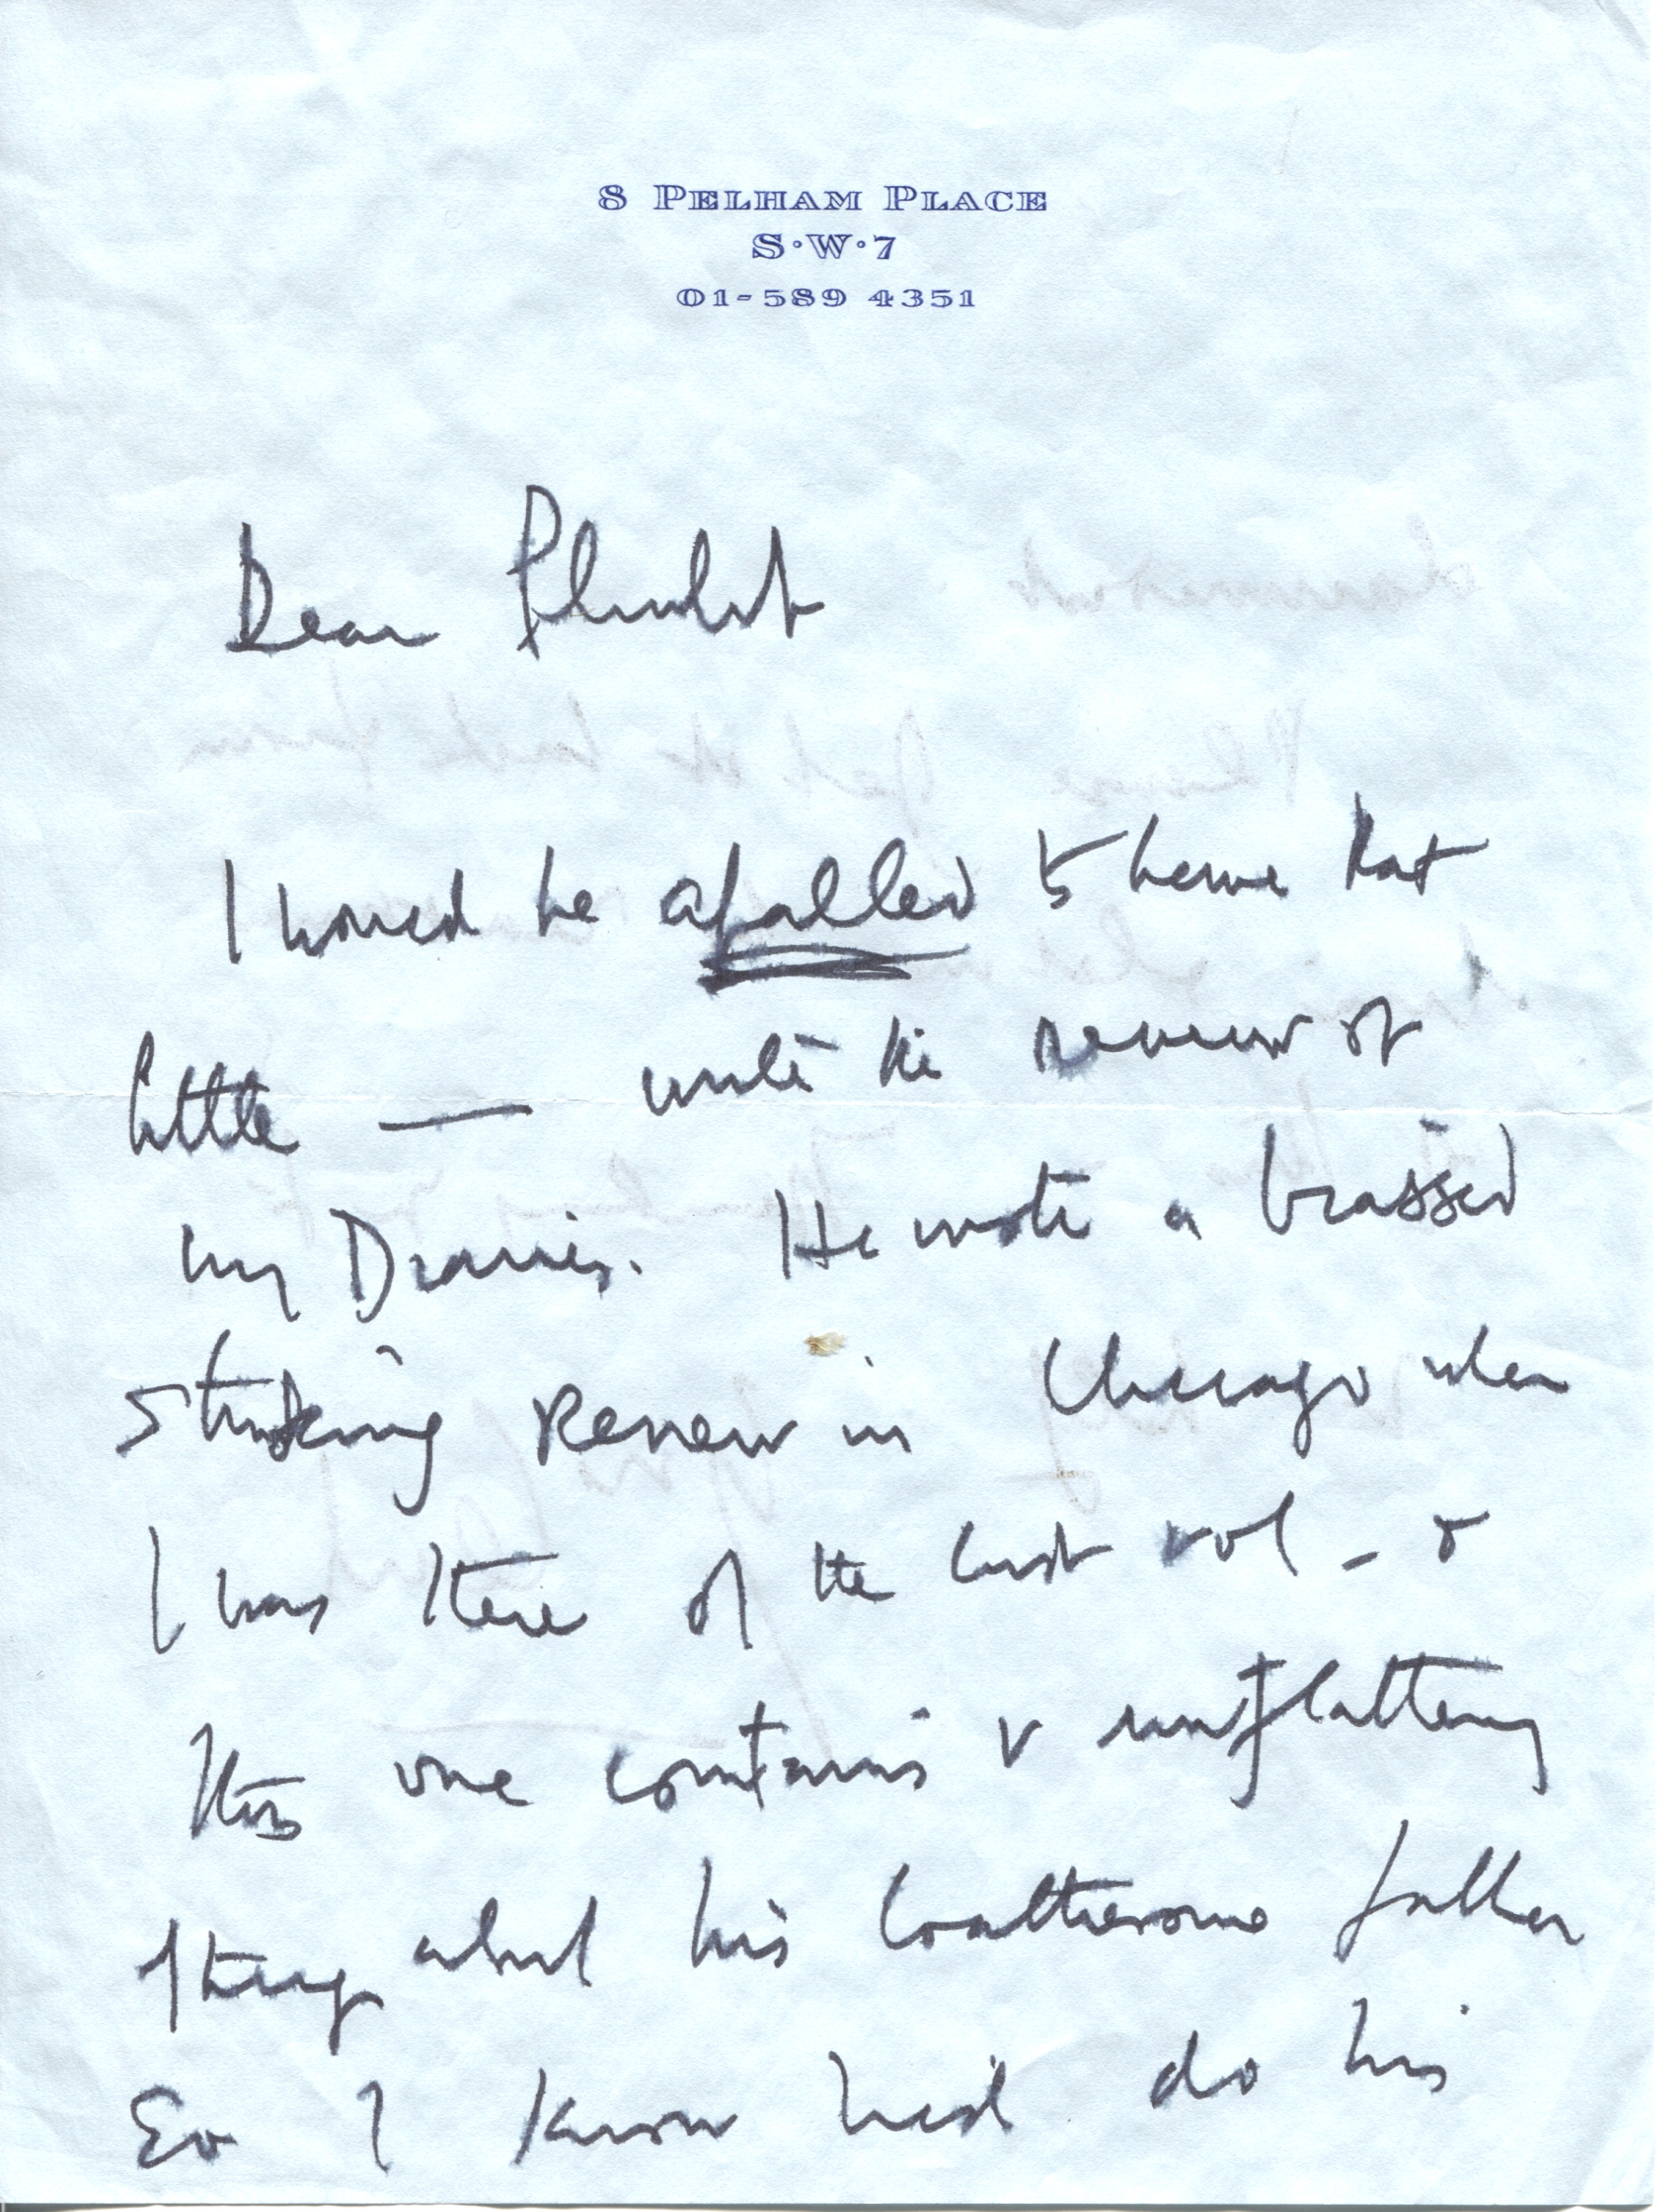 8 PELHAM PLACE
S·W·7
01-589 4351
Dear
I would be apalled to have that
little — write the review of
my Diaries. He wrote a biassed
stinking Review in Chicago when
I was there of the last vol - &
this one contains v unflattering
things about his loathesome father
So I know he'd do his